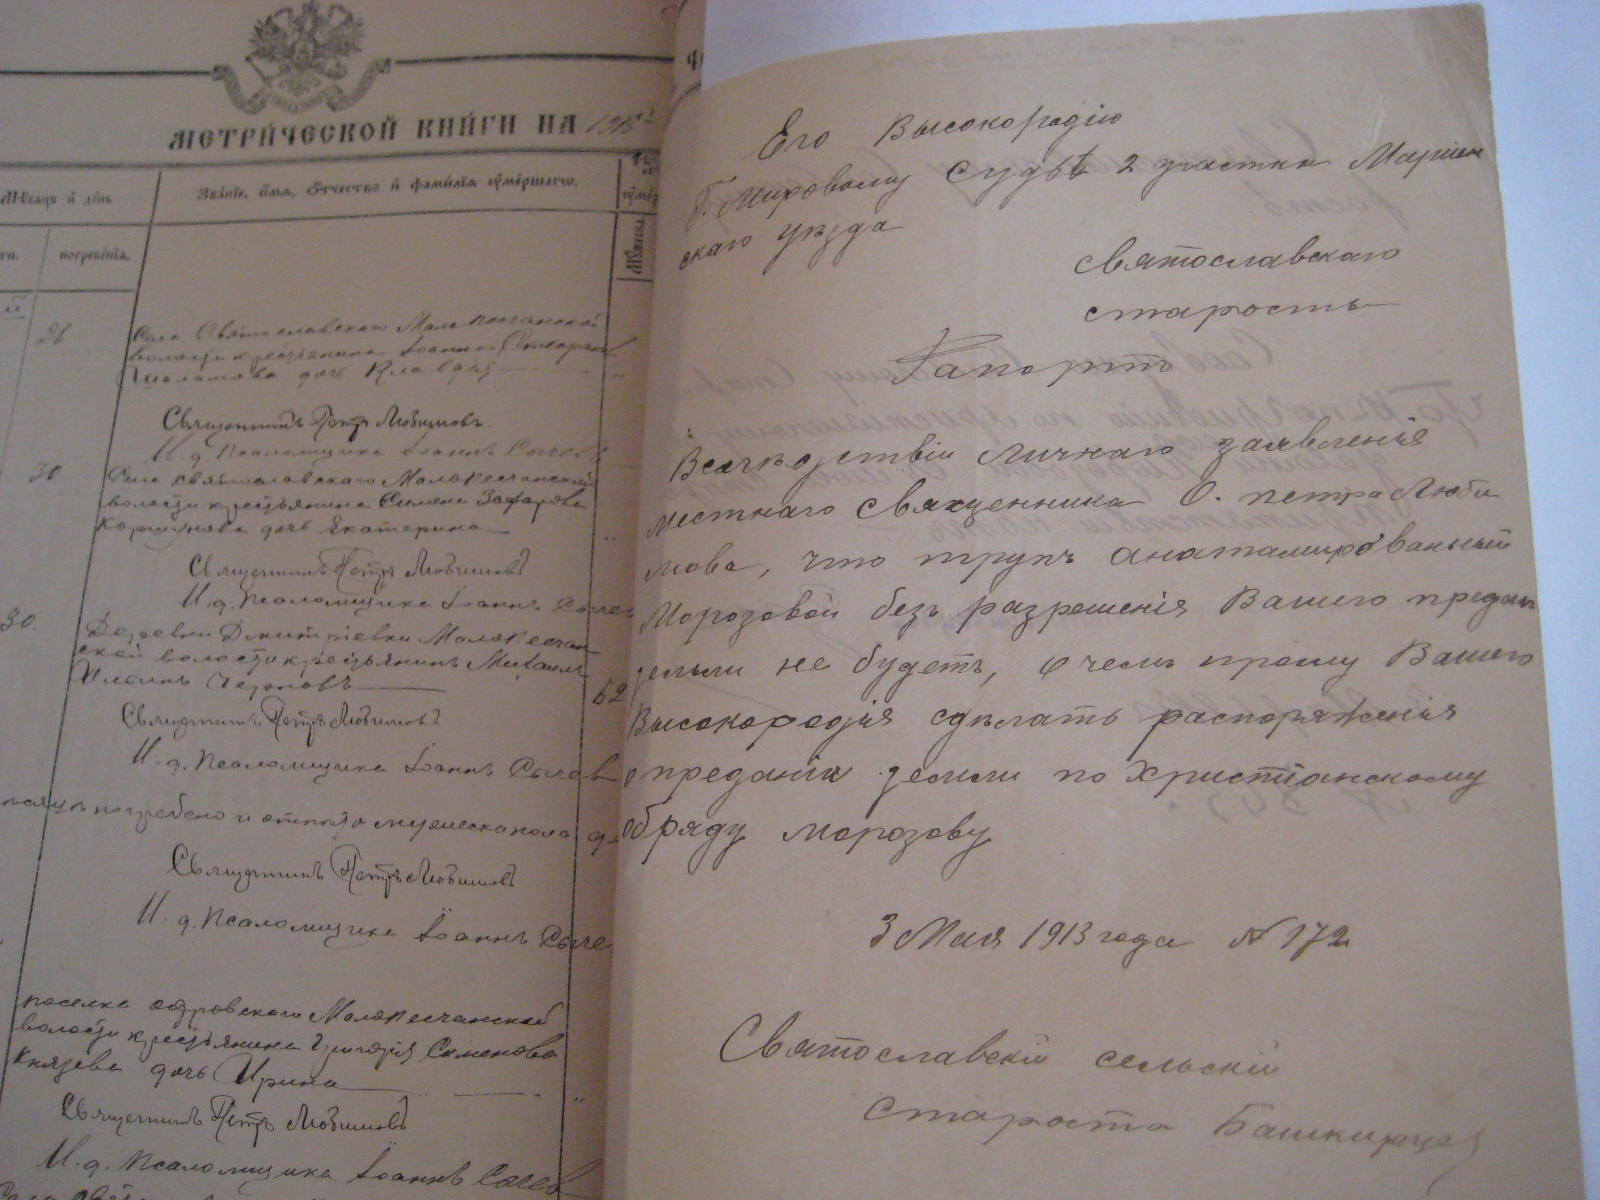 МЕТРИЧЕСКОЙ КНИГИ НА 1913
Мѣсяцъ и день
Званіе, имя, отчество и фамилія умершаго.
погребенія.
26
Села Святославскаго Малопесчанской
волости крестьянина Іоанна
дочь Клавдія
Священникъ Петръ Любимовъ.
И. д. Псаломщика Іоаннъ Сычевъ
30
Села Святославскаго Малопесчанской
волости крестьянина Симеона Захарова
Коршунова дочь Екатерина
Священникъ Петръ Любимовъ
И. д. Псаломщика Іоаннъ Сычевъ
30.
Деревни Дмитріевки Малопесчан-
ской волости крестьянинъ Михаилъ
Черновъ
52
Священникъ Петръ Любимовъ
И. д. Псаломщика Іоаннъ Сычев
погребено и отпѣто мужеска пола
Священникъ Петръ Любимовъ
И. д. Псаломщика Іоаннъ Сыче
поселка Малопесчанской
волости крестьянина Григорія Семенова
Князева дочь Ирина
Священникъ Петръ Любимовъ
И. д. Псаломщика Іоаннъ Сычев
Его Высокородію
Г. Мировому Судьѣ 2 участка Маріин
скаго уѣзда
Святославскаго
старосты
Рапортъ
Вслѣдствіи личнаго заявленія
местнаго Священника О. петра Люби
мова, что трупъ анатамированый
Морозовой безъ разрешенія Вашего предан
земли не будетъ, о чемъ прошу Вашего
Высокородія сдѣлать распоряженія
о преданіи земли по Христіанскому
обряду Морозову
3 Мая 1913 года № 172
Святославскій сельскій
Староста Башкирцев